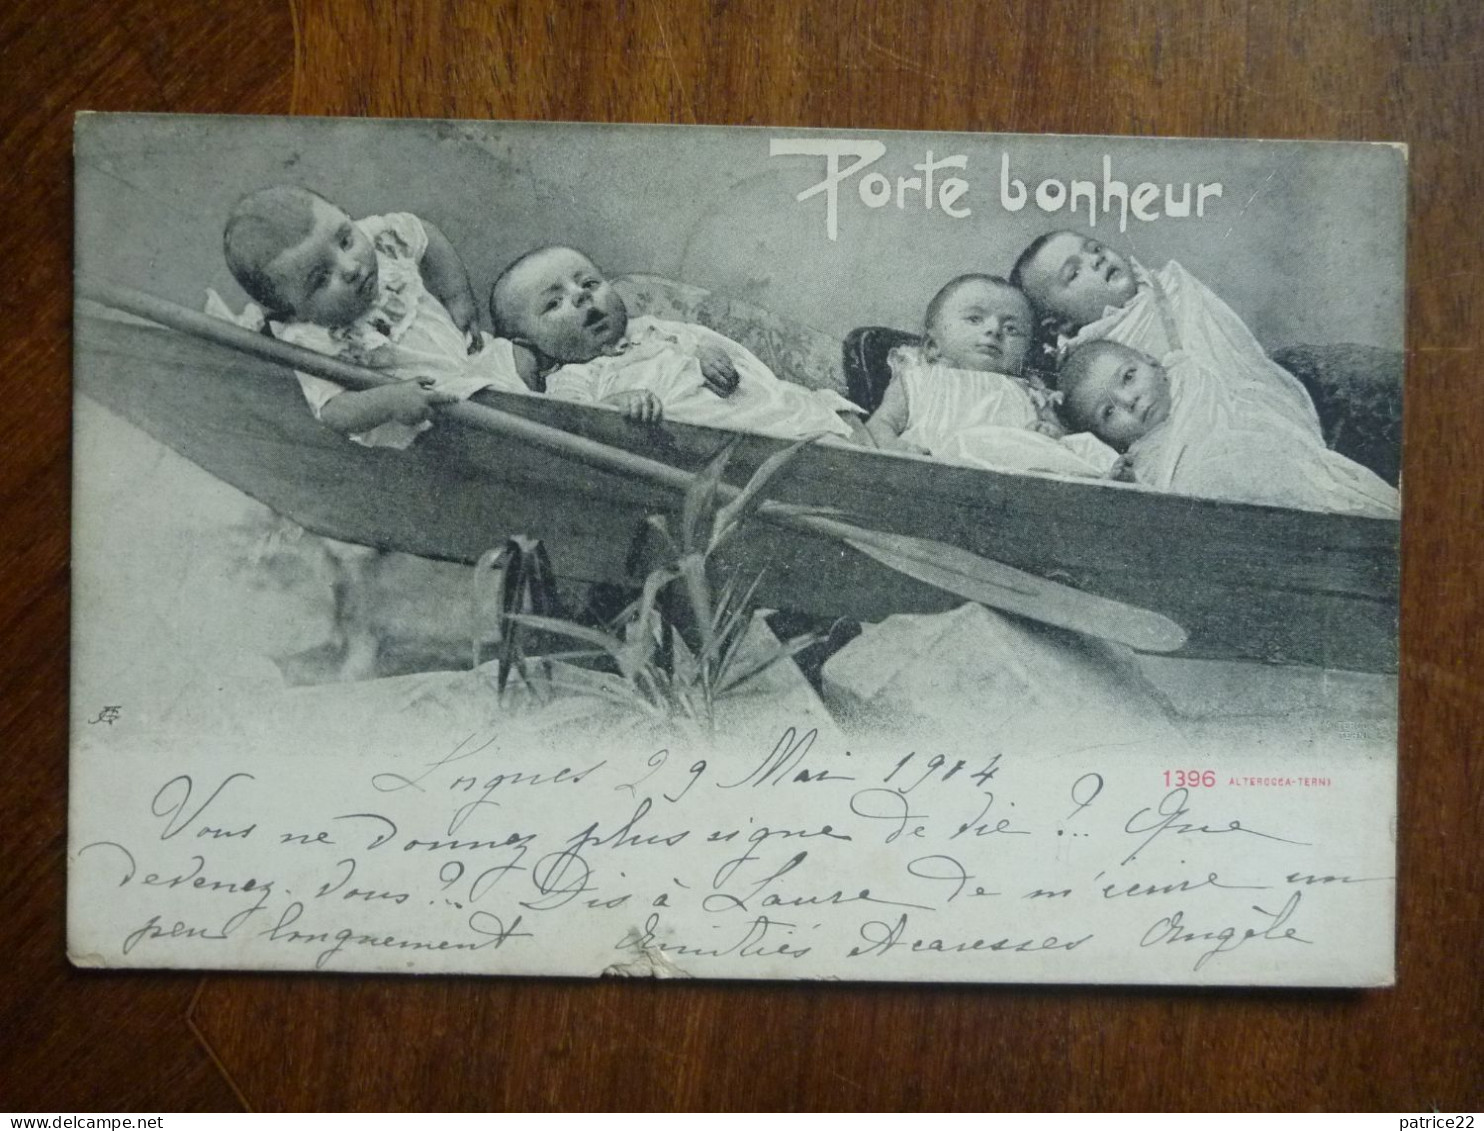 Porte bonheur
1396 ALTEROCCA-TERNI
29 Mai 1904
Vous ne donnez plus signe de vie ?.. Que
devenez-vous ?.. Dis à Laure de m'écrire un
peu longuement Amitiés et caresses Angèle
patrice22